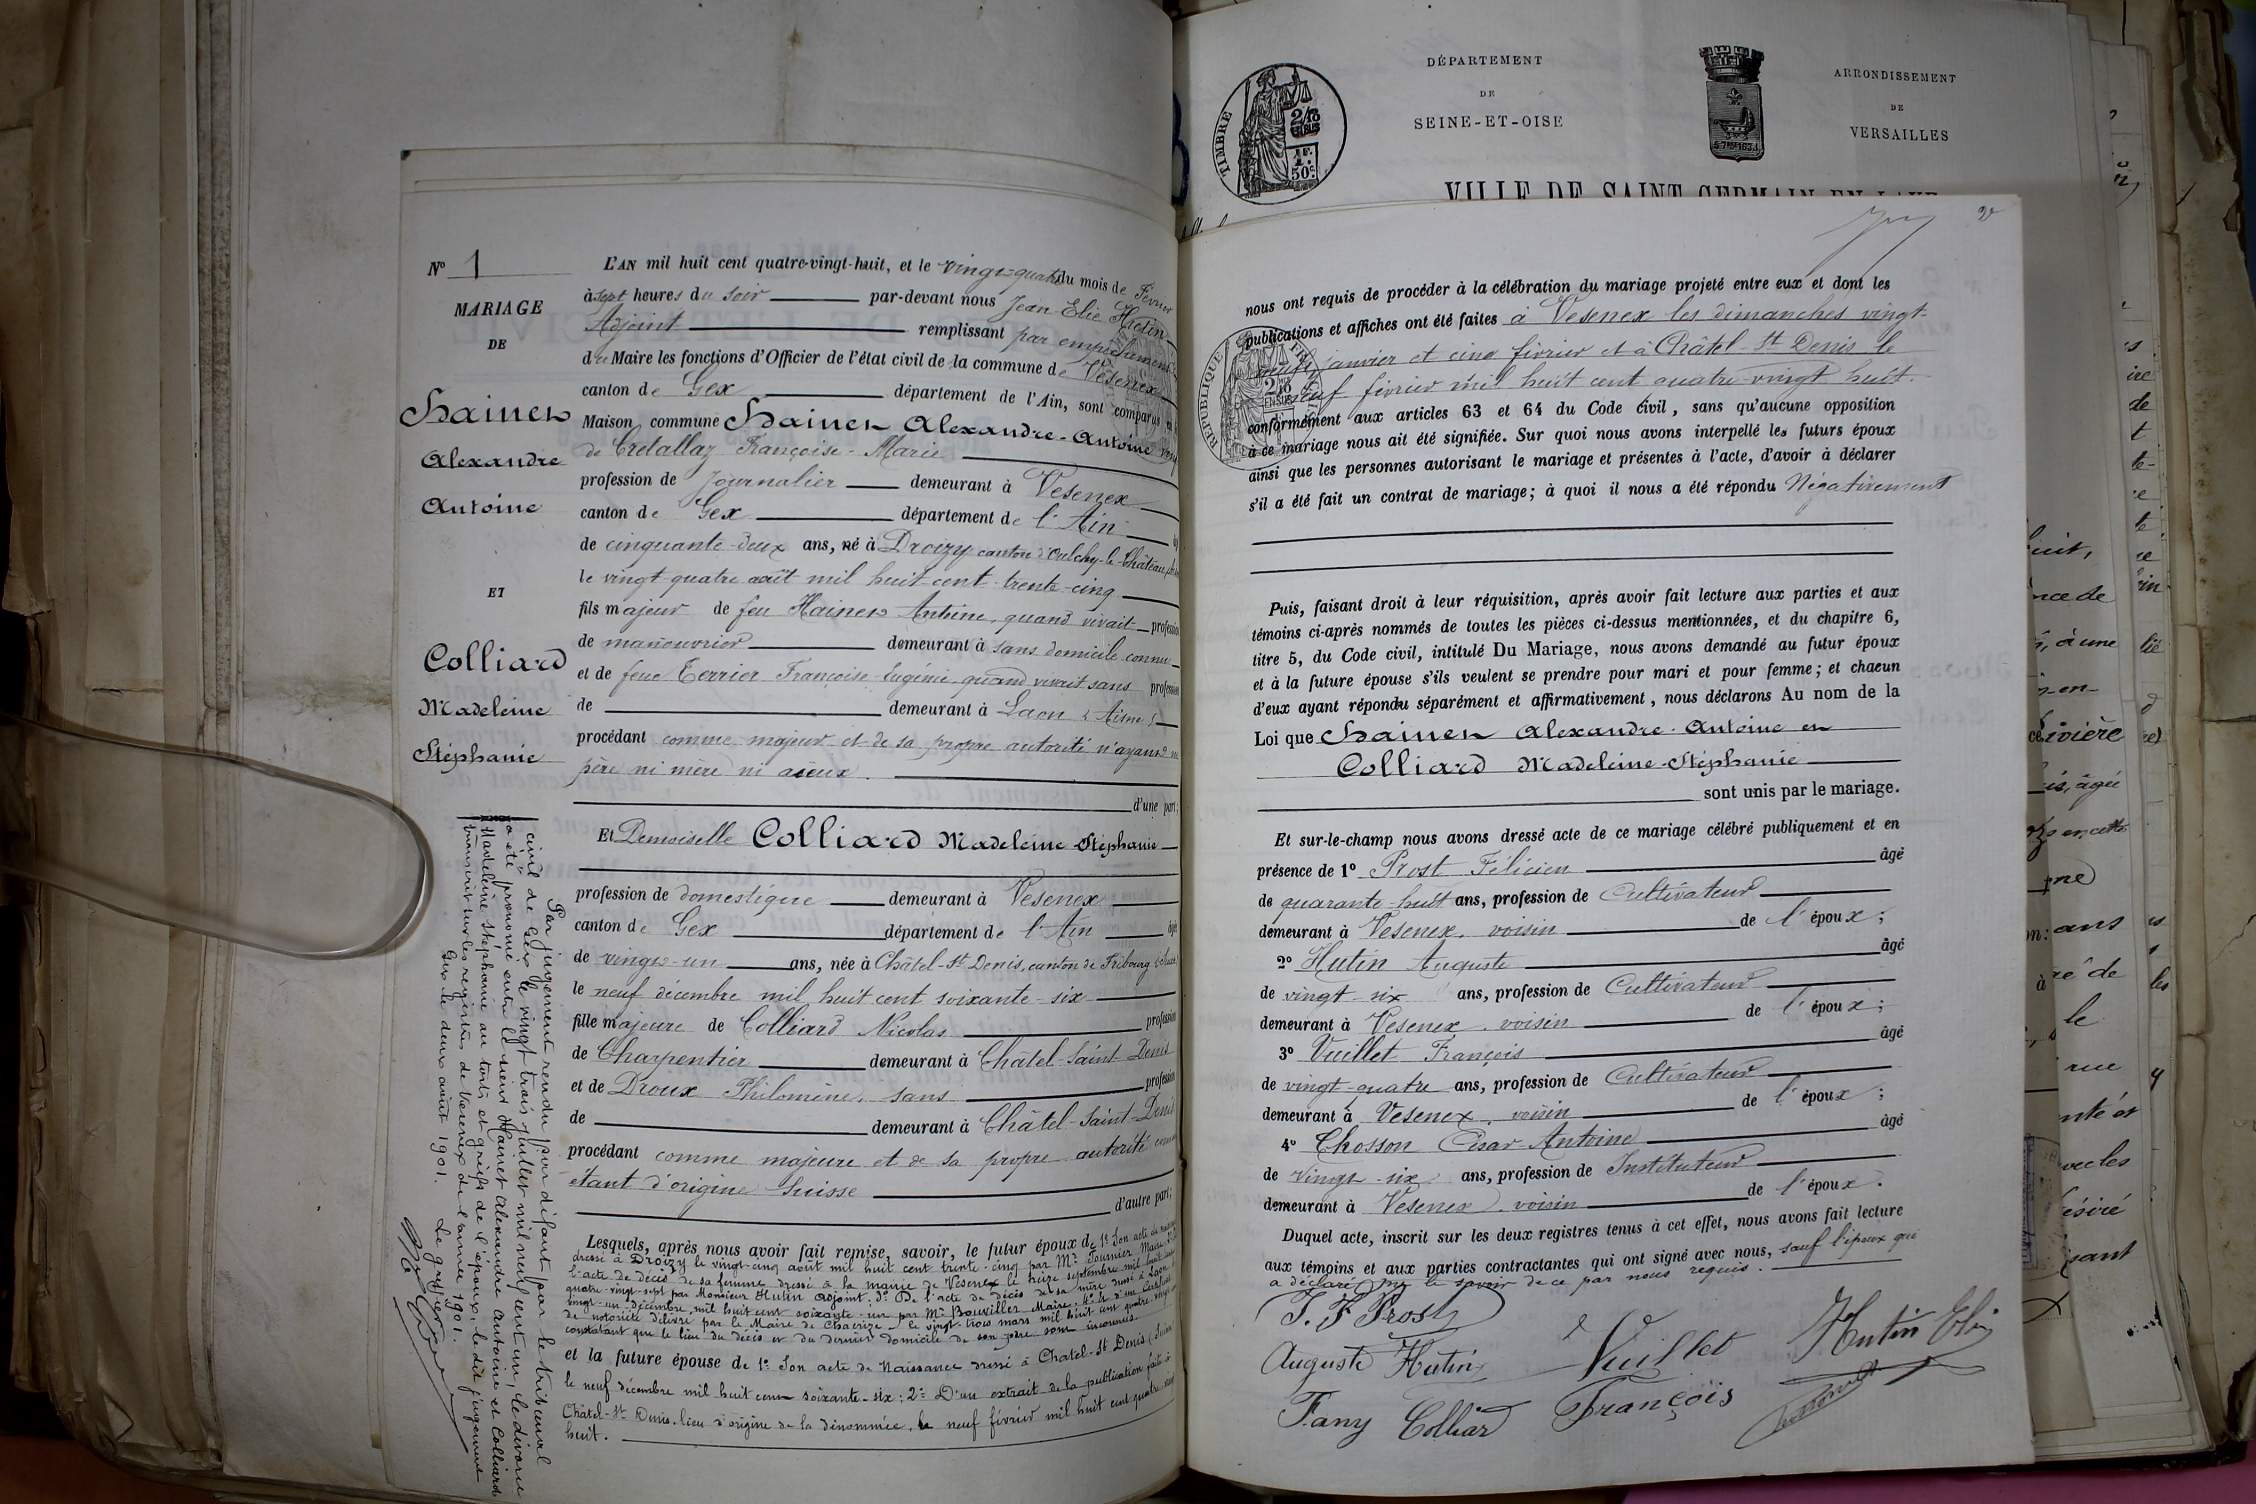 N° 1
MARIAGE
DE
Hainer
Alexandre
Antoine
ET
Colliard
Madeleine
Stéphanie
L'AN mil huit cent quatre-vingt-huit, et le vingt-quatre du mois de Février
à sept heures du soir par-devant nous Jean Elie Hutin
Adjoint remplissant par empêchement
du Maire les fonctions d'Officier de l'état civil de la commune de Vesenex
canton de Gex département de l'Ain, sont comparus en
Maison commune Hainer Alexandre-Antoine veuf
de Cretallaz Françoise-Marie
profession de Journalier demeurant à Vesenex
canton de Gex département de l'Ain
de cinquante-deux ans, né à Droizy canton d'Oulchy-le-Château
le vingt quatre août mil huit cent trente-cinq
fils majeur de feu Hainer Antoine, quand vivait profession
de manouvrier demeurant à sans domicile connu
et de feue Terrier Françoise-Eugénie quand vivait sans profession
de demeurant à Laon (Aisne)
procédant comme majeur et de sa propre autorité n'ayant ni
père ni mère ni aïeux.
d'une part;
Et Demoiselle Colliard Madeleine Stéphanie
profession de domestique demeurant à Vesenex
canton de Gex département de l'Ain âgée
de vingt-un ans, née à Châtel-St Denis, canton de Fribourg (Suisse)
le neuf décembre mil huit cent soixante-six
fille majeure de Colliard Nicolas profession
de Charpentier demeurant à Châtel-Saint-Denis
et de Droux Philomène, sans profession
de demeurant à Châtel-Saint-Denis
procédant comme majeure et de sa propre autorité comme
étant d'origine Suisse
d'autre part;
Lesquels, après nous avoir fait remise, savoir, le futur époux de 1° Son acte de naissance
dressé à Droizy le vingt-cinq août mil huit cent trente-cinq par Mr Fournier Maire; 2°
l'acte de décès de sa femme dressé à la mairie de Vesenex le treize septembre mil huit cent
quatre-vingt-sept par Monsieur Hutin adjoint; 3° De l'acte de décès de sa mère dressé à Laon le
vingt-un décembre mil huit cent soixante-un par Mr Bouviller Maire; 4° d'un certificat
de notoriété délivré par le Maire de Chacrize le vingt-trois mars mil huit cent quatre-vingt
constatant que le lieu du décès et du dernier domicile de son père sont inconnus.
et la future épouse de 1° Son acte de Naissance dressé à Chatel-St Denis (Suisse)
le neuf décembre mil huit cent soixante-six; 2° D'un extrait de la publication faite à
Châtel-St Denis, lieu d'origine de la dénommée, le neuf février mil huit cent quatre vingt
huit.
Par jugement rendu par défaut par le tribunal
civil de Gex le vingt trois juillet mil neuf cent un, le divorce
a été prononcé entre le sieur Hainer Alexandre Antoine et Colliard
Madeleine Stéphanie aux torts et griefs de l'époux, le dit jugement
transcrit sur les registres de Vesenex de l'année 1901.
Gex le deux août 1901. Le greffier
TIMBRE
2/10
EN SUS
1F.
50c
DÉPARTEMENT
DE
SEINE-ET-OISE
ARRONDISSEMENT
DE
VERSAILLES
VILLE DE SAINT-GERMAIN-EN-LAYE
nous ont requis de procéder à la célébration du mariage projeté entre eux et dont les
publications et affiches ont été faites à Vesenex les dimanches vingt-
neuf janvier et cinq février et à Châtel-St Denis le
neuf février mil huit cent quatre-vingt huit.
conformément aux articles 63 et 64 du Code civil, sans qu'aucune opposition
à ce mariage nous ait été signifiée. Sur quoi nous avons interpellé les futurs époux
ainsi que les personnes autorisant le mariage et présentes à l'acte, d'avoir à déclarer
s'il a été fait un contrat de mariage; à quoi il nous a été répondu Négativement
Puis, faisant droit à leur réquisition, après avoir fait lecture aux parties et aux
témoins ci-après nommés de toutes les pièces ci-dessus mentionnées, et du chapitre 6,
titre 5, du Code civil, intitulé Du Mariage, nous avons demandé au futur époux
et à la future épouse s'ils veulent se prendre pour mari et pour femme; et chacun
d'eux ayant répondu séparément et affirmativement, nous déclarons Au nom de la
Loi que Hainer Alexandre-Antoine et
Colliard Madeleine-Stéphanie
sont unis par le mariage.
Et sur-le-champ nous avons dressé acte de ce mariage célébré publiquement et en
présence de 1° Prost Félicien âgé
de quarante-huit ans, profession de Cultivateur
demeurant à Vesenex, voisin de l'époux;
2° Hutin Auguste âgé
de vingt-six ans, profession de Cultivateur
demeurant à Vesenex, voisin de l'époux;
3° Vuillet François âgé
de vingt-quatre ans, profession de Cultivateur
demeurant à Vesenex, voisin de l'époux;
4° Chosson César-Antoine âgé
de vingt-six ans, profession de Instituteur
demeurant à Vesenex, voisin de l'époux.
Duquel acte, inscrit sur les deux registres tenus à cet effet, nous avons fait lecture
aux témoins et aux parties contractantes qui ont signé avec nous, sauf l'époux qui
a déclaré ne le savoir de ce par nous requis.
J. F Prost
Auguste Hutin
Vuillet
François
Hutin Elie
Fany Colliard